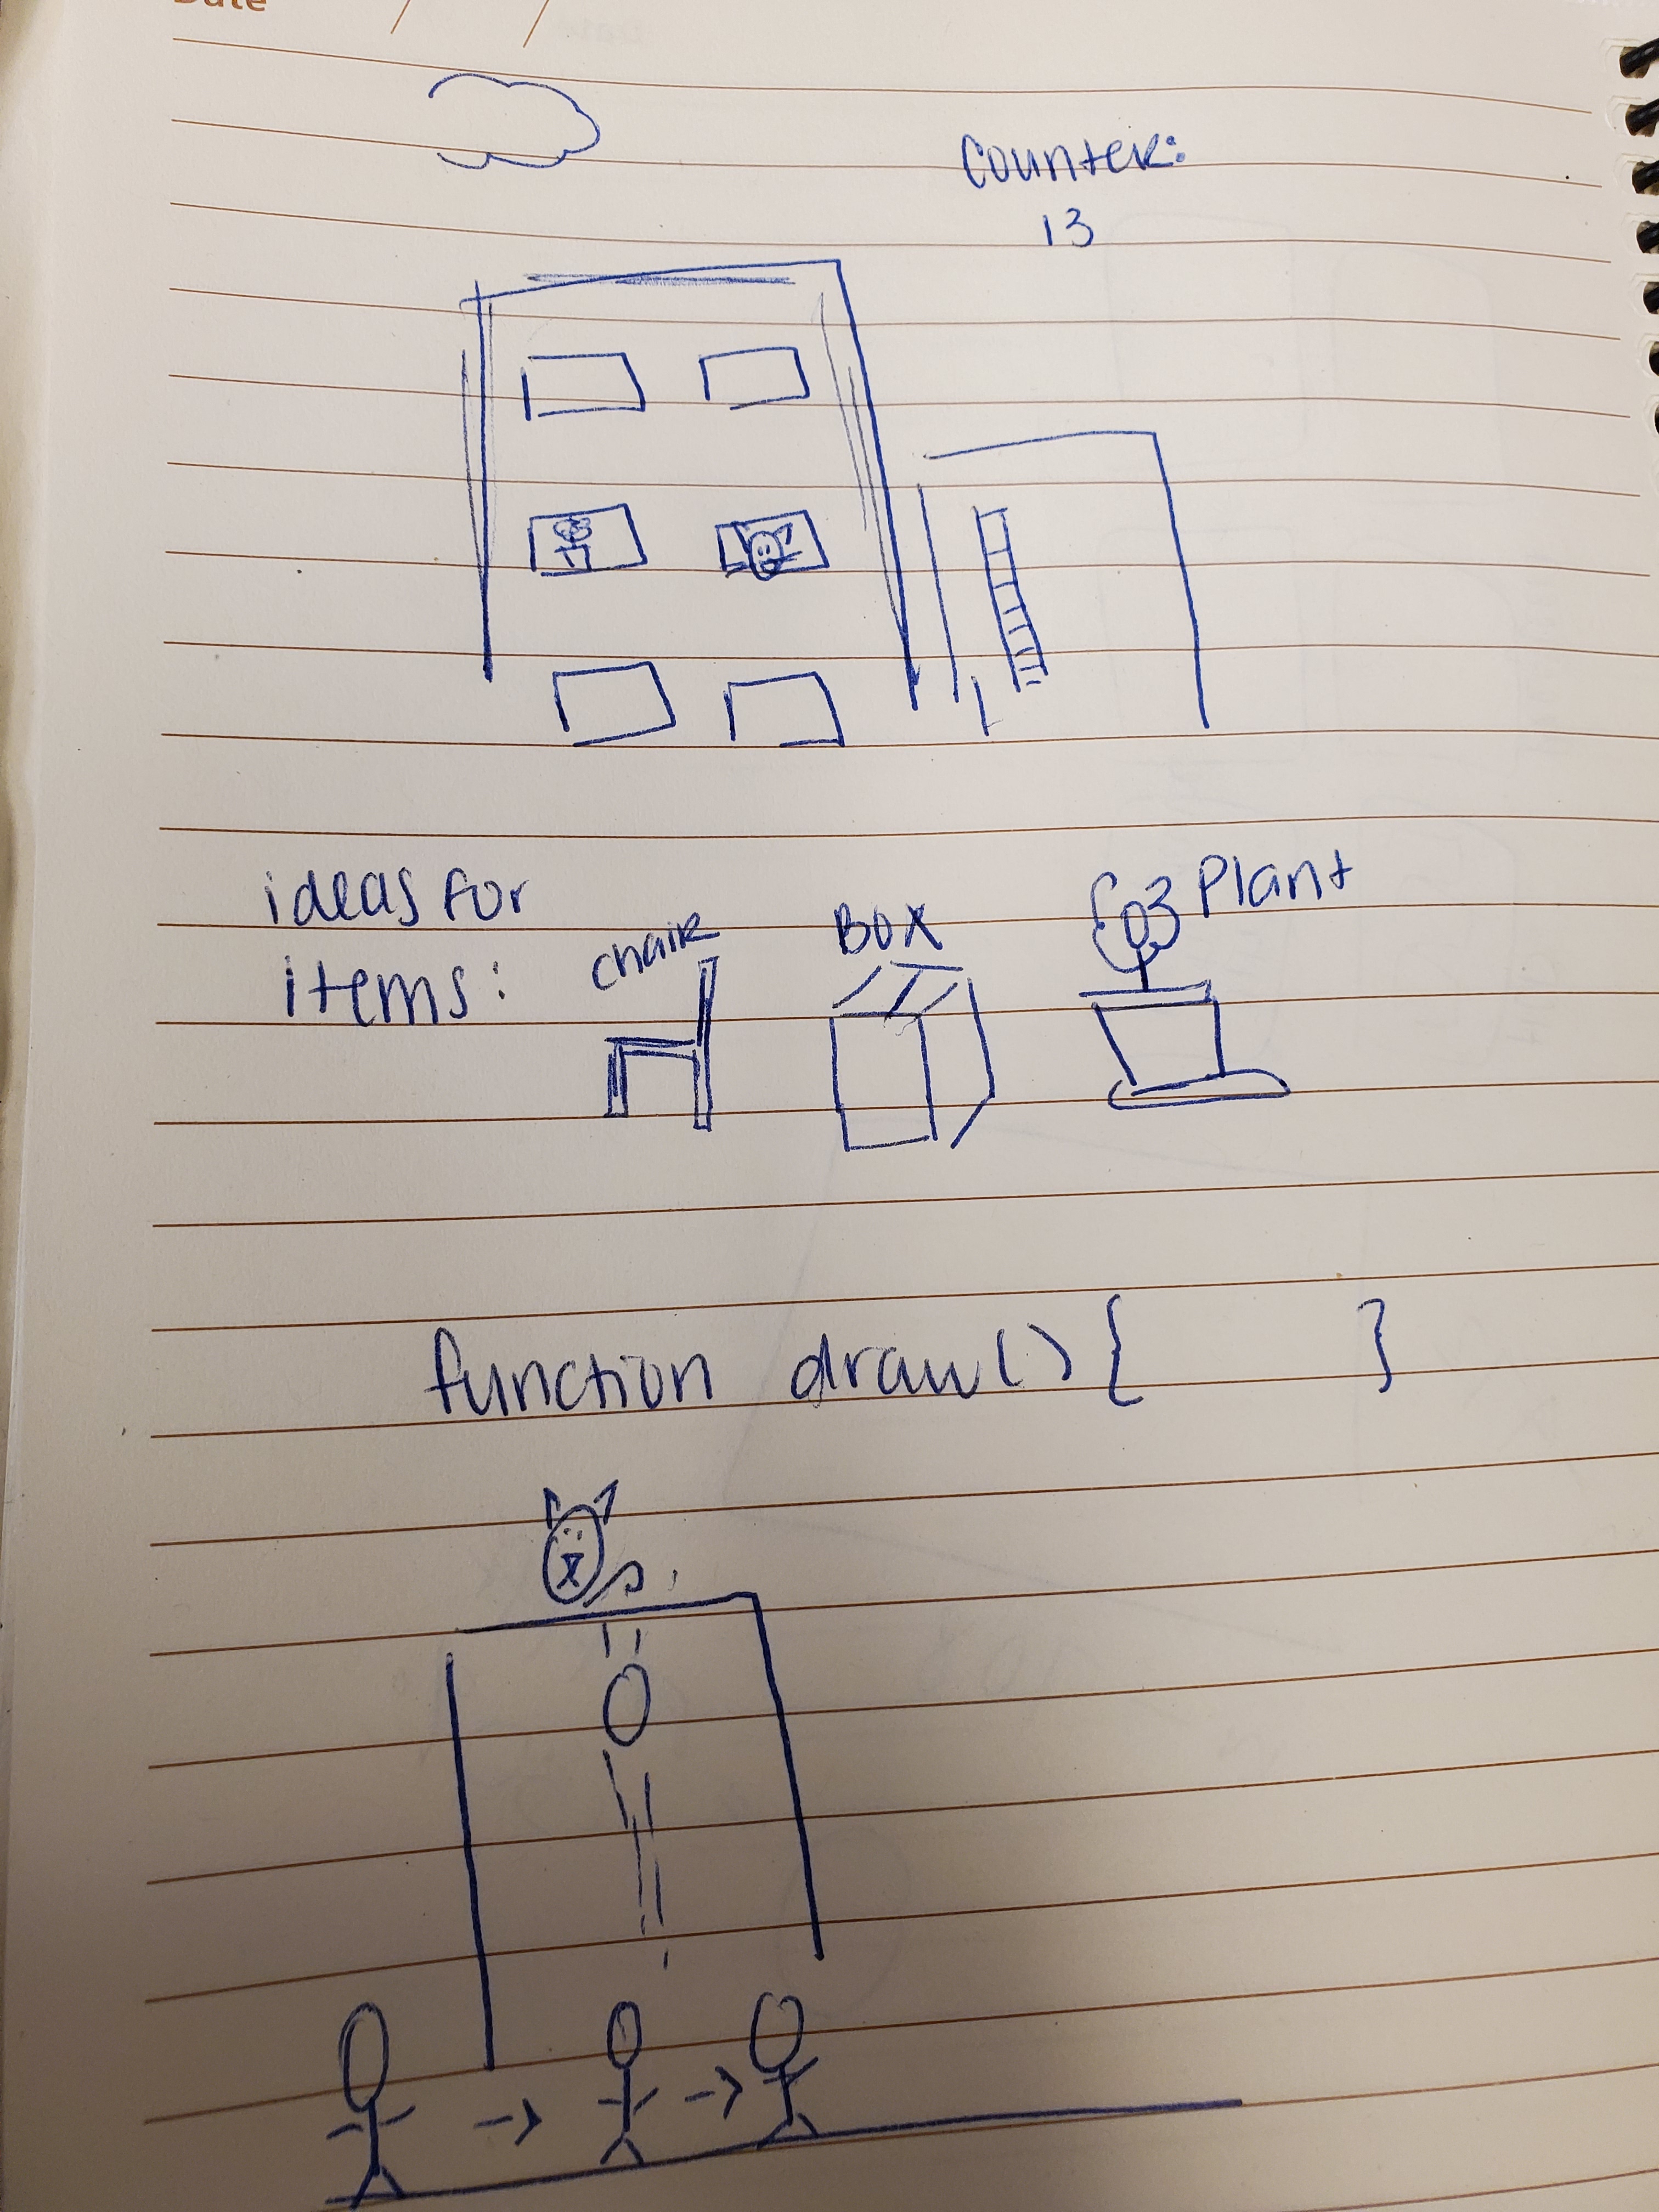 Date / /
Counter:
13
ideas for
items:
chair
BOX
Plant
function draw() { }